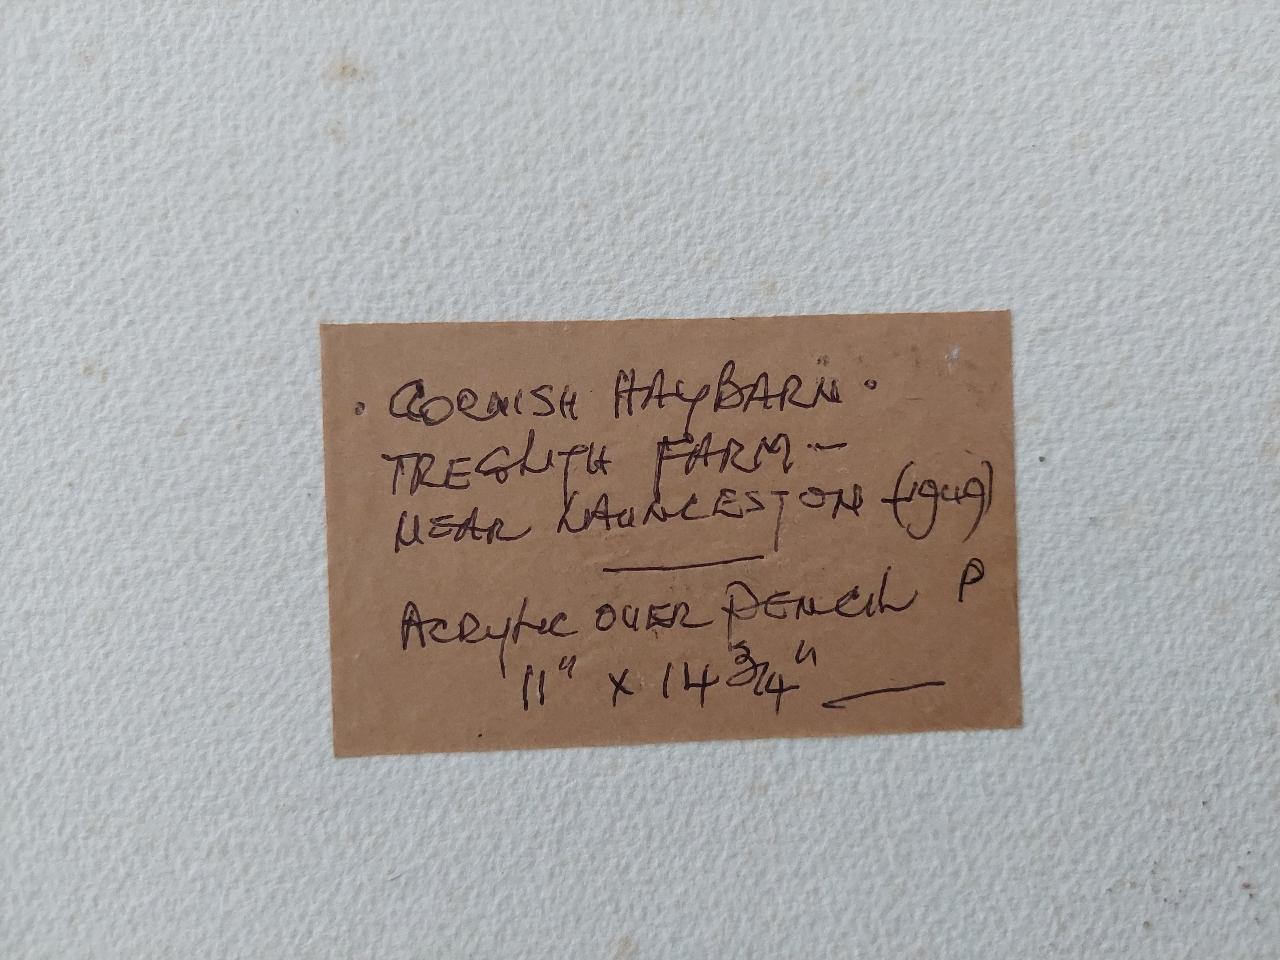 · CORNISH HAYBARN ·
TREGLITH FARM —
NEAR LAUNCESTON (1949)
ACRYLIC OVER PENCIL P
11" x 14 3/4"